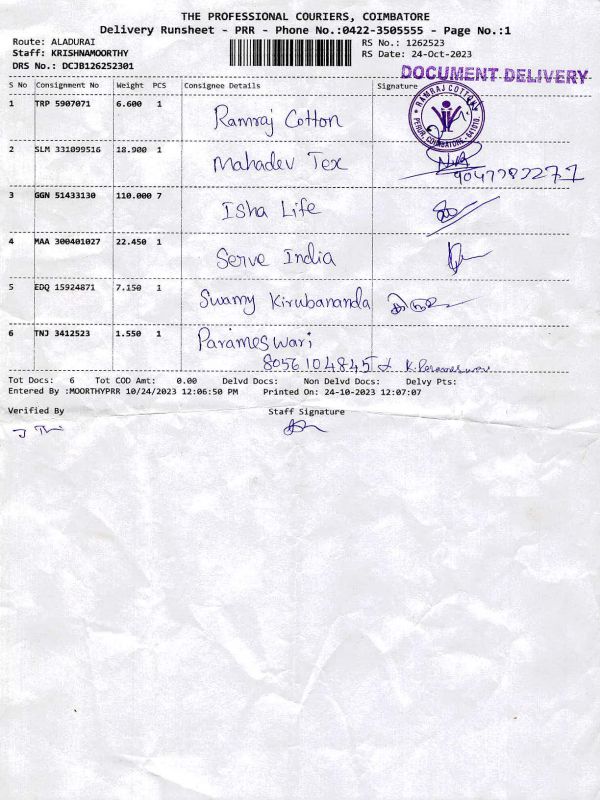 THE PROFESSIONAL COURIERS, COIMBATORE
Delivery Runsheet - PRR - Phone No.:0422-3505555 - Page No.:1
Route: ALADURAI
Staff: KRISHNAMOORTHY
DRS No.: DCJB126252301
RS No.: 1262523
RS Date: 24-Oct-2023
DOCUMENT DELIVERY
S No Consignment No Weight PCS Consignee Details Signature
1 TRP 5907071 6.600 1 Ramraj Cotton
RAMRAJ COTTON
PERUR, COIMBATORE - 641010.
2 SLM 331099516 18.900 1 Mahadev Tex
3 GGN 51433130 110.000 7 Isha Life
4 MAA 300401027 22.450 1 Serve India
5 EDQ 15924871 7.150 1 Swamy Kirubananda
6 TNJ 3412523 1.550 1 Parameswari
8056104845 K. Parameswari
Tot Docs: 6 Tot COD Amt: 0.00 Delvd Docs: Non Delvd Docs: Delvy Pts:
Entered By :MOORTHYPRR 10/24/2023 12:06:50 PM Printed On: 24-10-2023 12:07:07
Verified By Staff Signature